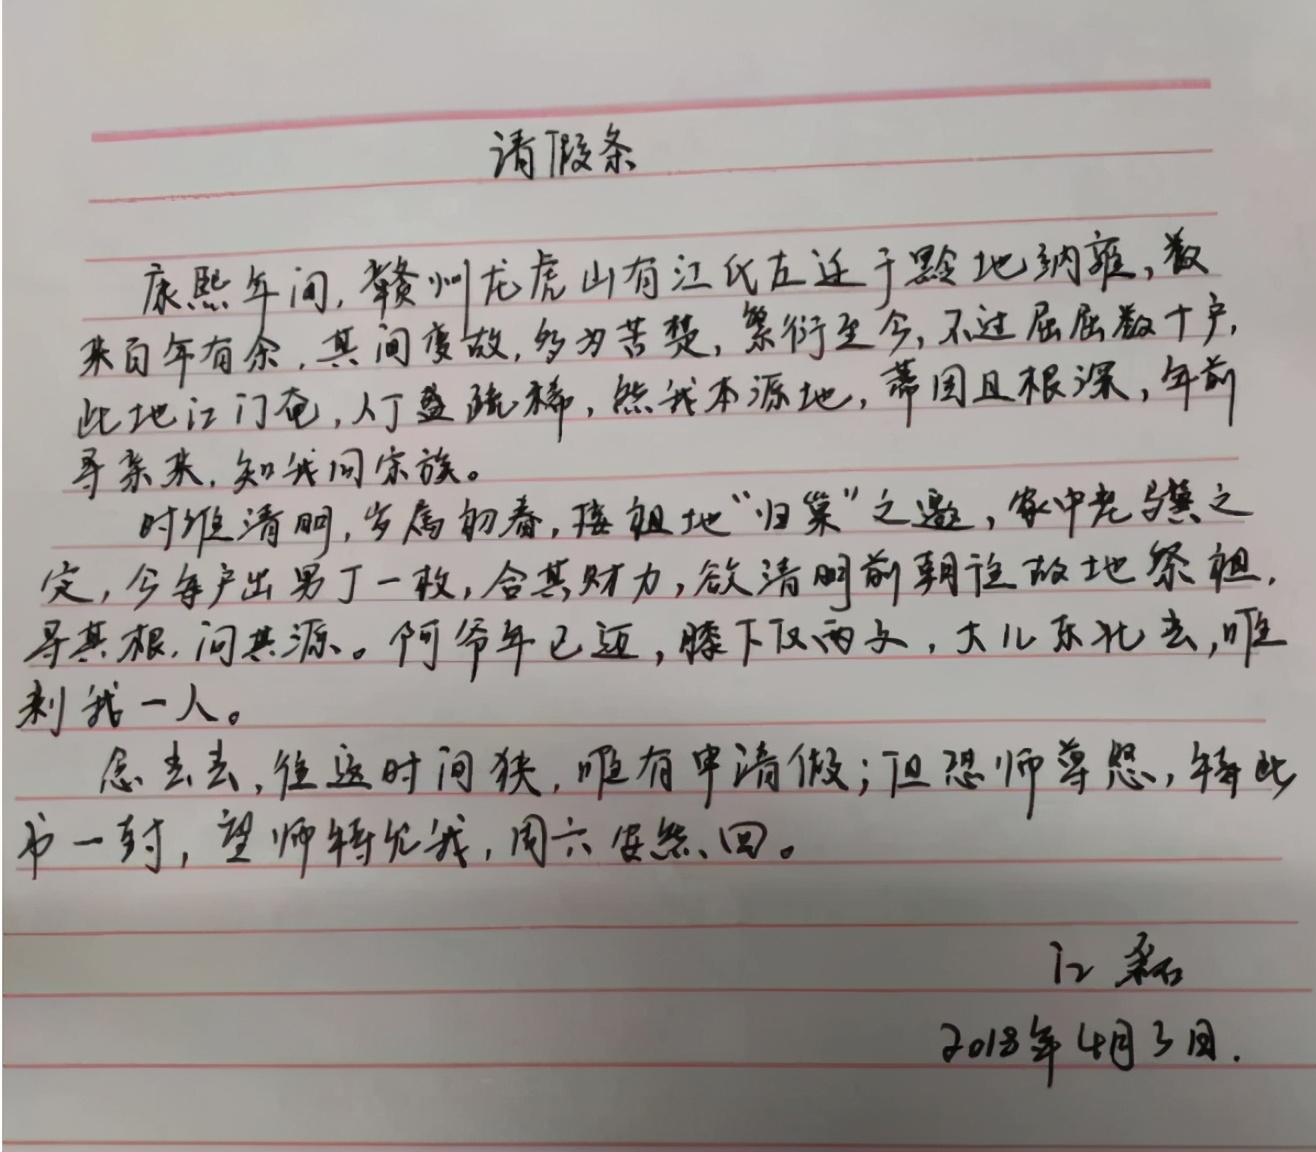 请假条
康熙年间,赣州龙虎山有江氏左迁于黔地纳雍,数
来百年有余,其间变故,多为苦楚,繁衍至今,不过屈屈数十户,
此地江门奄,人丁盖疏稀,然我本源地,蒂固且根深,年前
寻亲来,知我同宗族。
时维清明,岁属初春,接祖地“归巢”之邀,家中老骥之
定,今每户出男丁一枚,合其财力,欲清明前朝往故地祭祖,
寻其根,问其源。阿爷年已迈,膝下仅两丈,大儿东北去,唯
剩我一人。
念去去,往返时间狭,唯有申请假;但恐师尊怒,特此
书一封,望师特允我,周六安然回。
江磊
2018年4月3日.